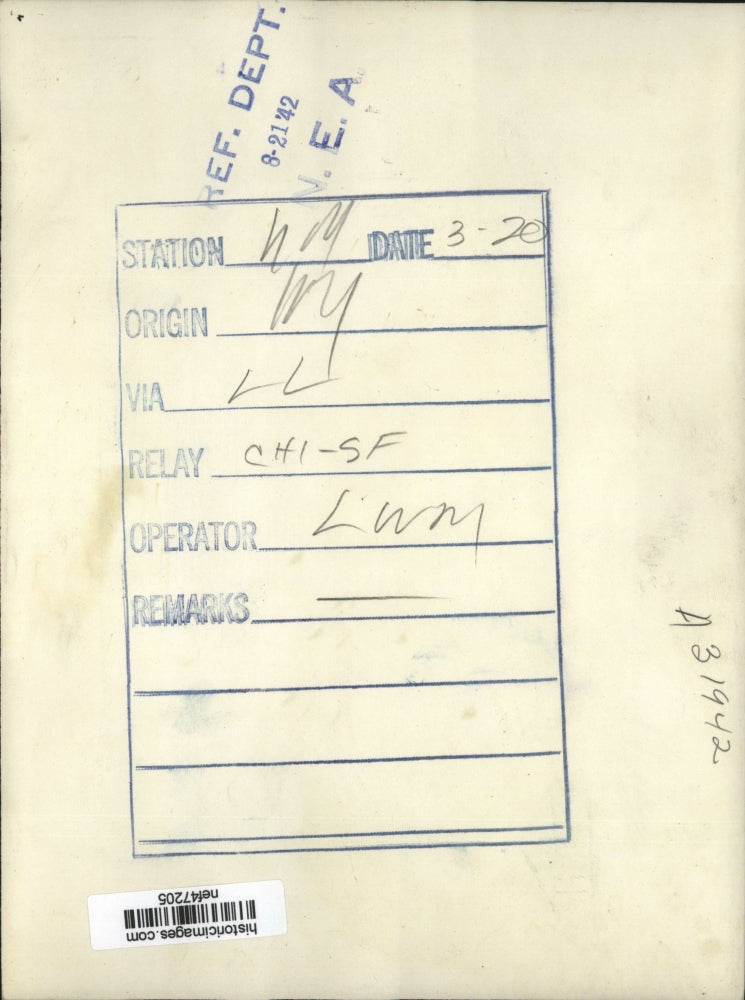 REF. DEPT.
8-21'42
N. E. A.
STATION NY DATE 3-20
ORIGIN NY
VIA LL
RELAY CHI-SF
OPERATOR
REMARKS —
A 31942
historicimages.com
nef47205